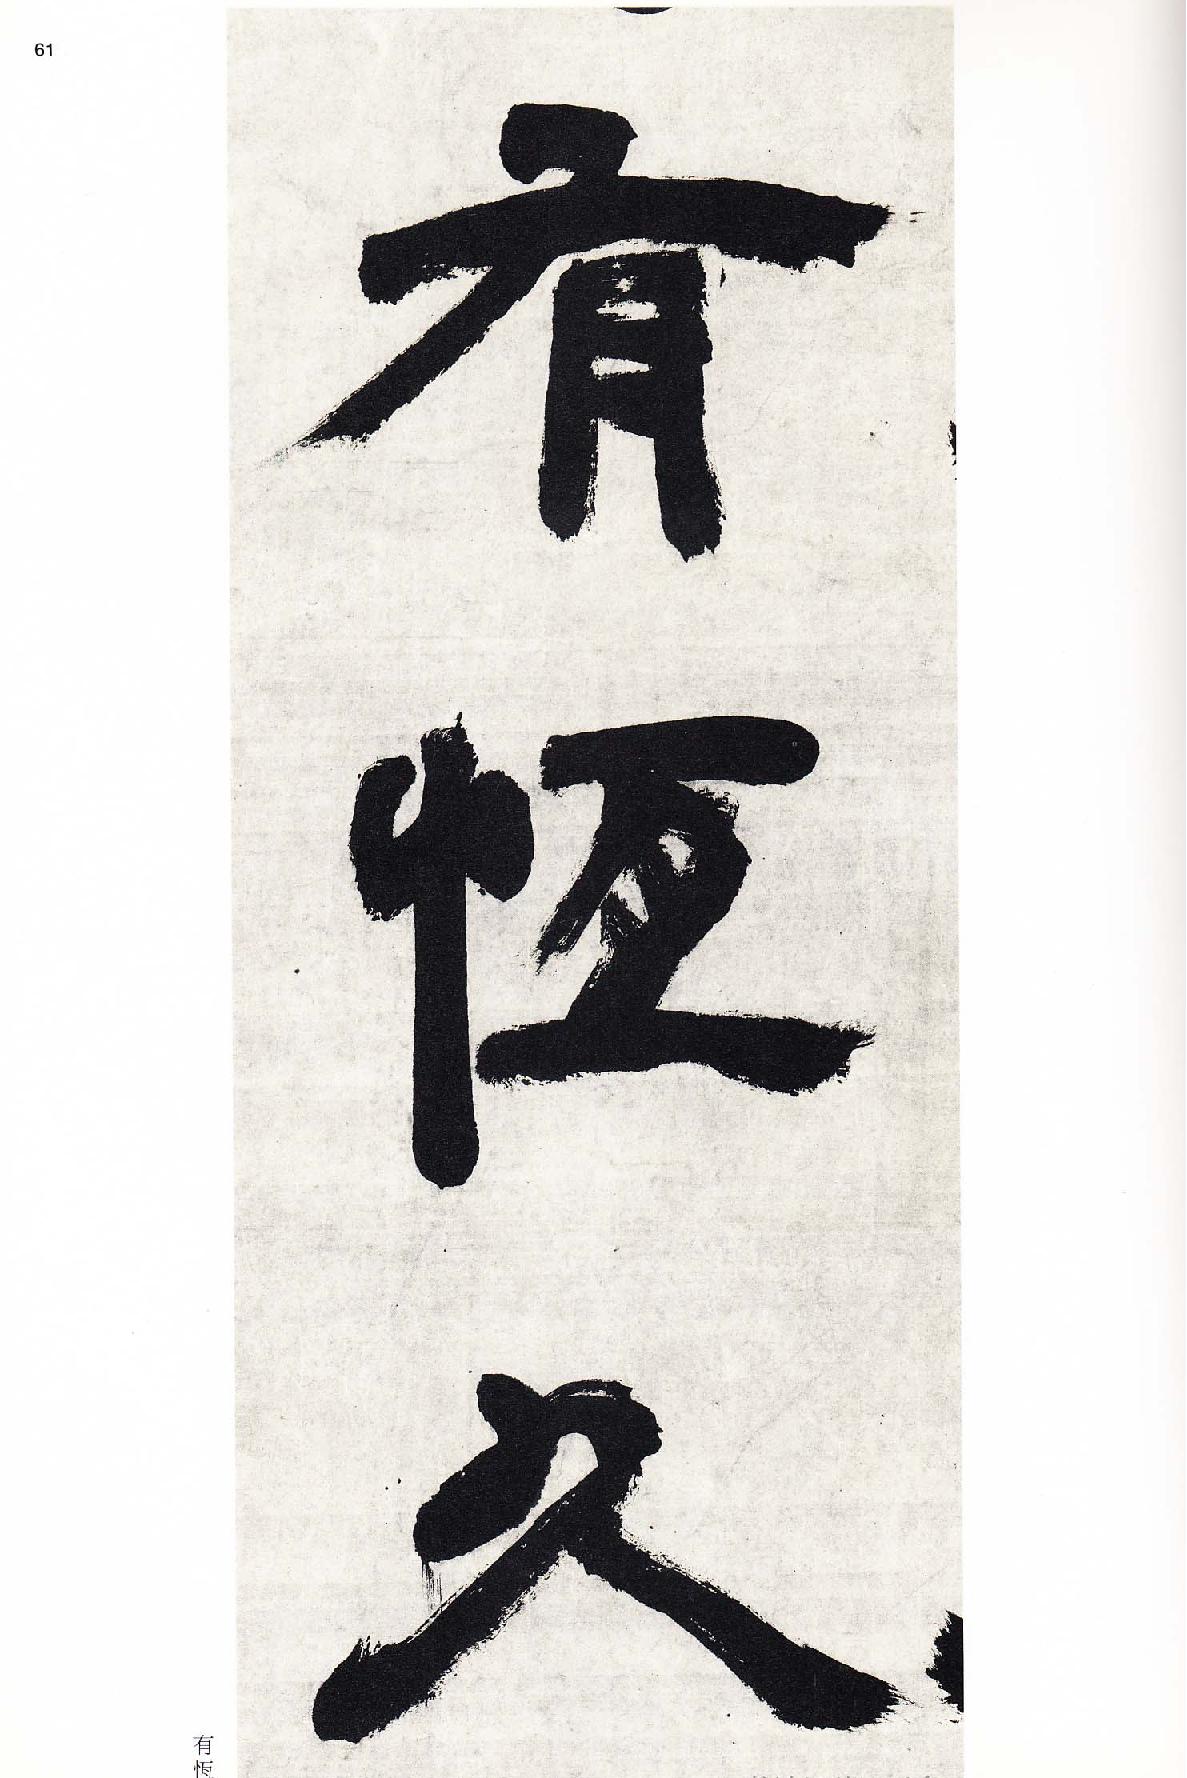 61
有恆久
有恆